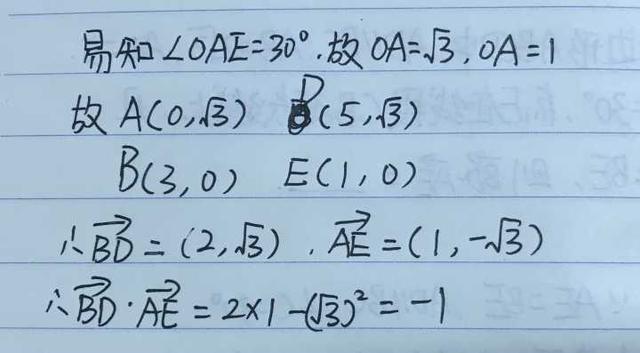 易知∠OAE=30°.故OA=√3,OA=1
故A(0,√3) D(5,√3)
B(3,0) E(1,0)
∴BD→=(2,√3).AE→=(1,-√3)
∴BD→·AE→=2×1-(√3)²=-1